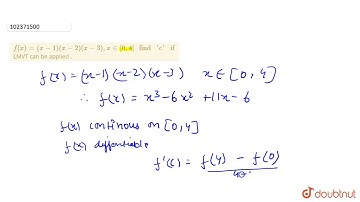 102371500
f(x) = (x − 1)(x − 2)(x − 3), x ∈ [0, 4] find 'c' if
LMVT can be applied .
f(x) = (x-1)(x-2)(x-3) x ∈ [0, 4]
∴ f(x) = x³-6x² +11x-6
f(x) continous on [0,4]
f(x) diffentiable
f'(c) = f(4) - f(0)
4-0
doubtnut